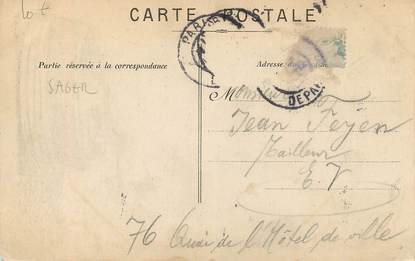 Lot
CARTE POSTALE
PARIS
DEPART
Partie réservée à la correspondance
Adresse du
SAGER
Monsieur
Jean Feyen
Tailleur
E.V.
76 Quai de l'Hôtel de ville